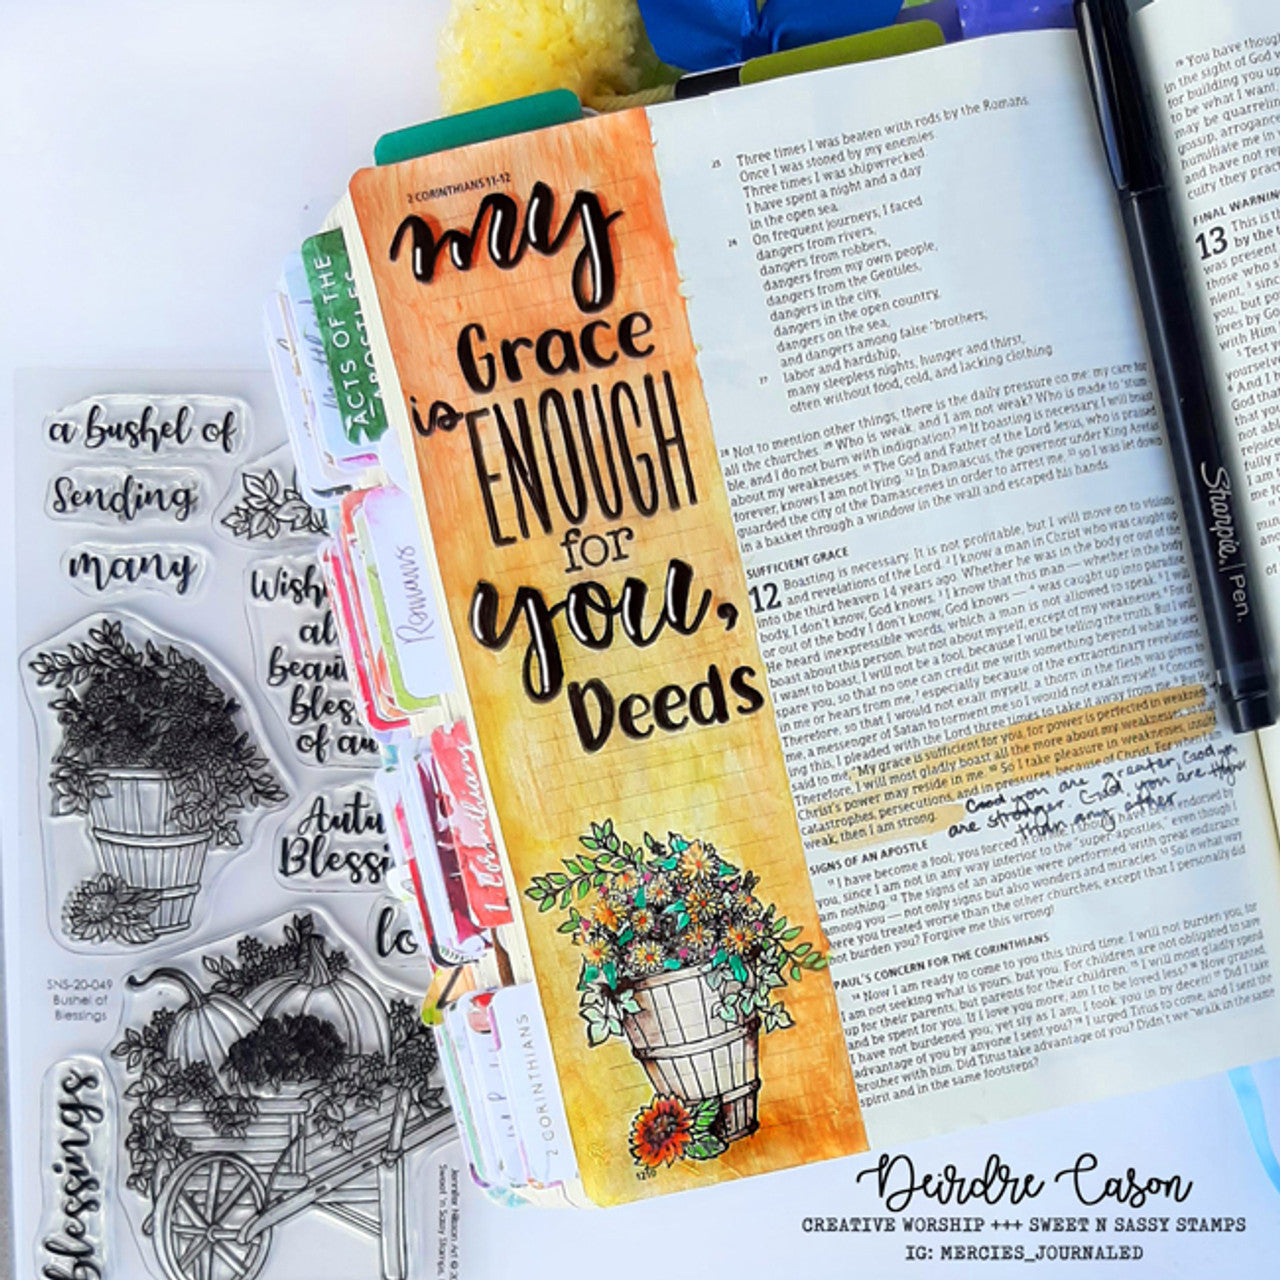 2 CORINTHIANS 11-12
my
Grace
is ENOUGH
for
you,
Deeds
1210
ACTS OF THE
APOSTLES
Romans
1 Corinthians
2 CORINTHIANS
a bushel of
Sending
many
Autu
Blessi
SNS-20-049
Bushel of
Blessings
blessings
25 Three times I was beaten with rods by the Romans.
Once I was stoned by my enemies.
Three times I was shipwrecked.
I have spent a night and a day
in the open sea.
26 On frequent journeys, I faced
dangers from rivers,
dangers from robbers,
dangers from my own people,
dangers from the Gentiles,
dangers in the city,
dangers in the open country,
dangers on the sea,
and dangers among false brothers;
27 labor and hardship,
many sleepless nights, hunger and thirst,
often without food, cold, and lacking clothing.
28 Not to mention other things, there is the daily pressure on me: my care for
all the churches. 29 Who is weak, and I am not weak? Who is made to stum-
ble, and I do not burn with indignation? 30 If boasting is necessary, I will boast
about my weaknesses. 31 The God and Father of the Lord Jesus, who is praised
forever, knows I am not lying. 32 In Damascus, the governor under King Aretas
guarded the city of the Damascenes in order to arrest me, 33 so I was let down
in a basket through a window in the wall and escaped his hands.
SUFFICIENT GRACE
12 Boasting is necessary. It is not profitable, but I will move on to visions
and revelations of the Lord. 2 I know a man in Christ who was caught up
into the third heaven 14 years ago. Whether he was in the body or out of the
body, I don't know, God knows. 3 I know that this man — whether in the body
or out of the body I don't know, God knows — 4 was caught up into paradise.
He heard inexpressible words, which a man is not allowed to speak. 5 I will
boast about this person, but not about myself, except of my weaknesses. 6 For if
I want to boast, I will not be a fool, because I will be telling the truth. But I will
spare you, so that no one can credit me with something beyond what he sees
in me or hears from me, 7 especially because of the extraordinary revelations.
Therefore, so that I would not exalt myself, a thorn in the flesh was given to
me, a messenger of Satan to torment me so I would not exalt myself. 8 Concern-
ing this, I pleaded with the Lord three times to take it away from me. 9 But He
said to me, "My grace is sufficient for you, for power is perfected in weakness."
Therefore, I will most gladly boast all the more about my weaknesses, so that
Christ's power may reside in me. 10 So I take pleasure in weaknesses, insults,
catastrophes, persecutions, and in pressures, because of Christ. For when I am
weak, then I am strong.
God you are greater, God you
are stronger. God, you are higher
than any other
SIGNS OF AN APOSTLE
11 I have become a fool; you forced it
you, since I am not in any way inferior to the "super-apostles," even though I
am nothing. 12 The signs of an apostle were performed with great endurance
among you — not only signs but also wonders and miracles. 13 So in what way
were you treated worse than the other churches, except that I personally did
not burden you? Forgive me this wrong!
PAUL'S CONCERN FOR THE CORINTHIANS
14 Now I am ready to come to you this third time. I will not burden you, for
I am not seeking what is yours, but you. For children are not obligated to save
up for their parents, but parents for their children. 15 I will most gladly spend
and be spent for you. If I love you more, am I to be loved less? 16 Now granted,
I have not burdened you; yet sly as I am, I took you in by deceit! 17 Did I take
advantage of you by anyone I sent you? 18 I urged Titus to come, and I sent the
brother with him. Did Titus take advantage of you? Didn't we walk in the same
spirit and in the same footsteps?
Sharpie. | PEN.
FINAL WARNIN
13 This is t
by the t
Deirdre Cason
CREATIVE WORSHIP +++ SWEET N SASSY STAMPS
IG: MERCIES_JOURNALED